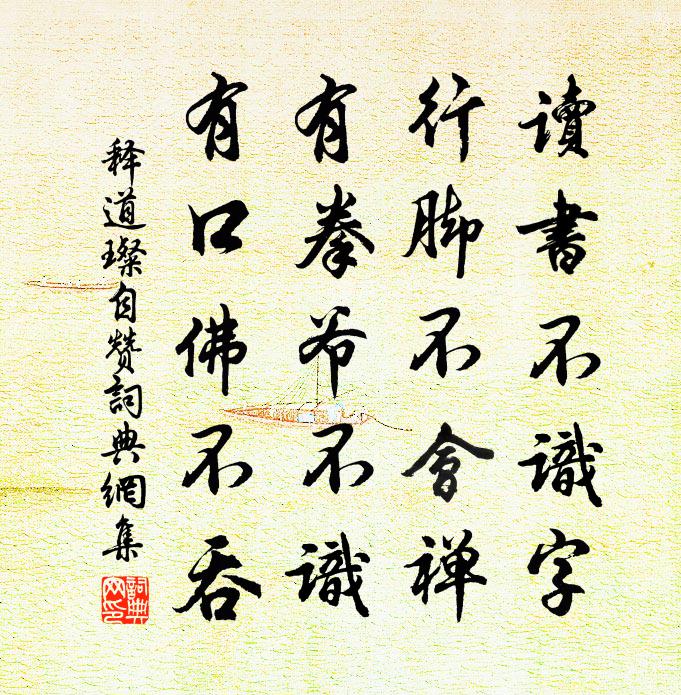 讀書不識字
行脚不會禅
有拳爷不識
有口佛不吞
释道璨自赞詞典網集
詞典网印